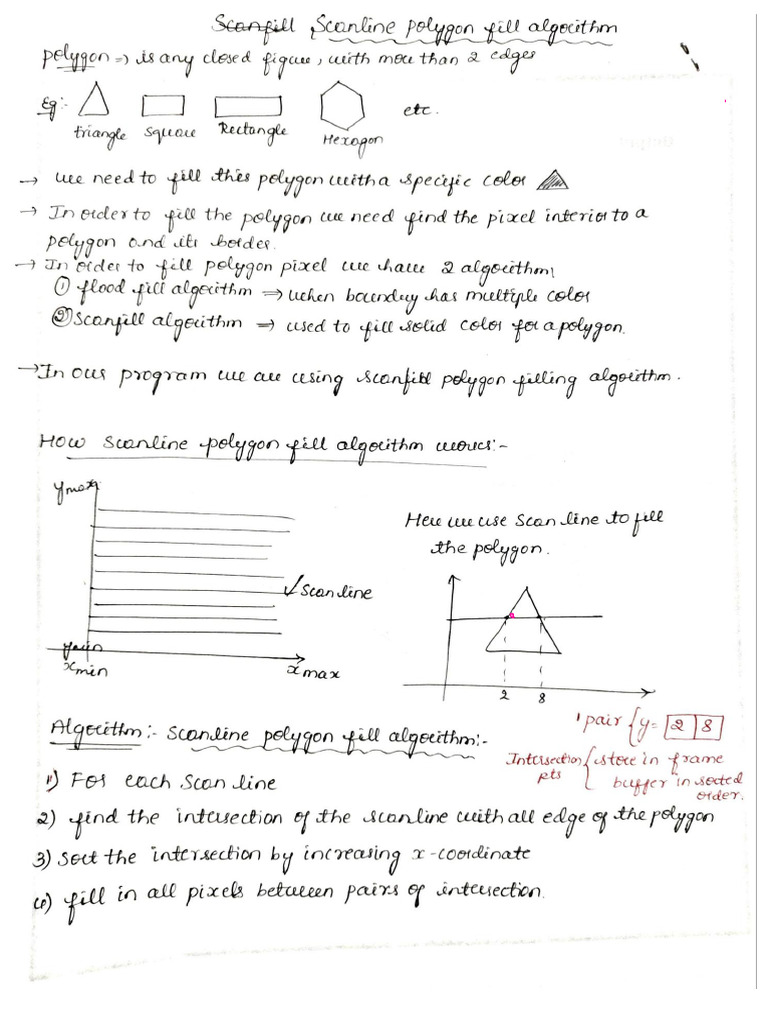 Scanfill, Scanline polygon fill algorithm
polygon => is any closed figure, with more than 2 edges
Eg:- etc.
triangle square Rectangle Hexogon
→ we need to fill this polygon with a specific color
→ In order to fill the polygon we need find the pixel interior to a
polygon and its border.
→ In order to fill polygon pixel we have 2 algorithm,
① flood fill algorithm => when boundry has multiple color
② Scanfill algorithm => used to fill solid color for a polygon.
→ In our program we are using scanfill polygon filling algorithm.
How scanline polygon fill algorithm works:-
ymax
Here we use scan line to fill
the polygon.
scanline
ymin
xmin xmax
2 8
1 pair { y= 2 8
Algorithm:- Scanline polygon fill algorithm:-
Intersection pts { store in frame
buffer in sorted
order.
1) For each scan line
2) find the intersection of the scanline with all edge of the polygon
3) sort the intersection by increasing x-coordinate
4) fill in all pixels between pairs of intersection.